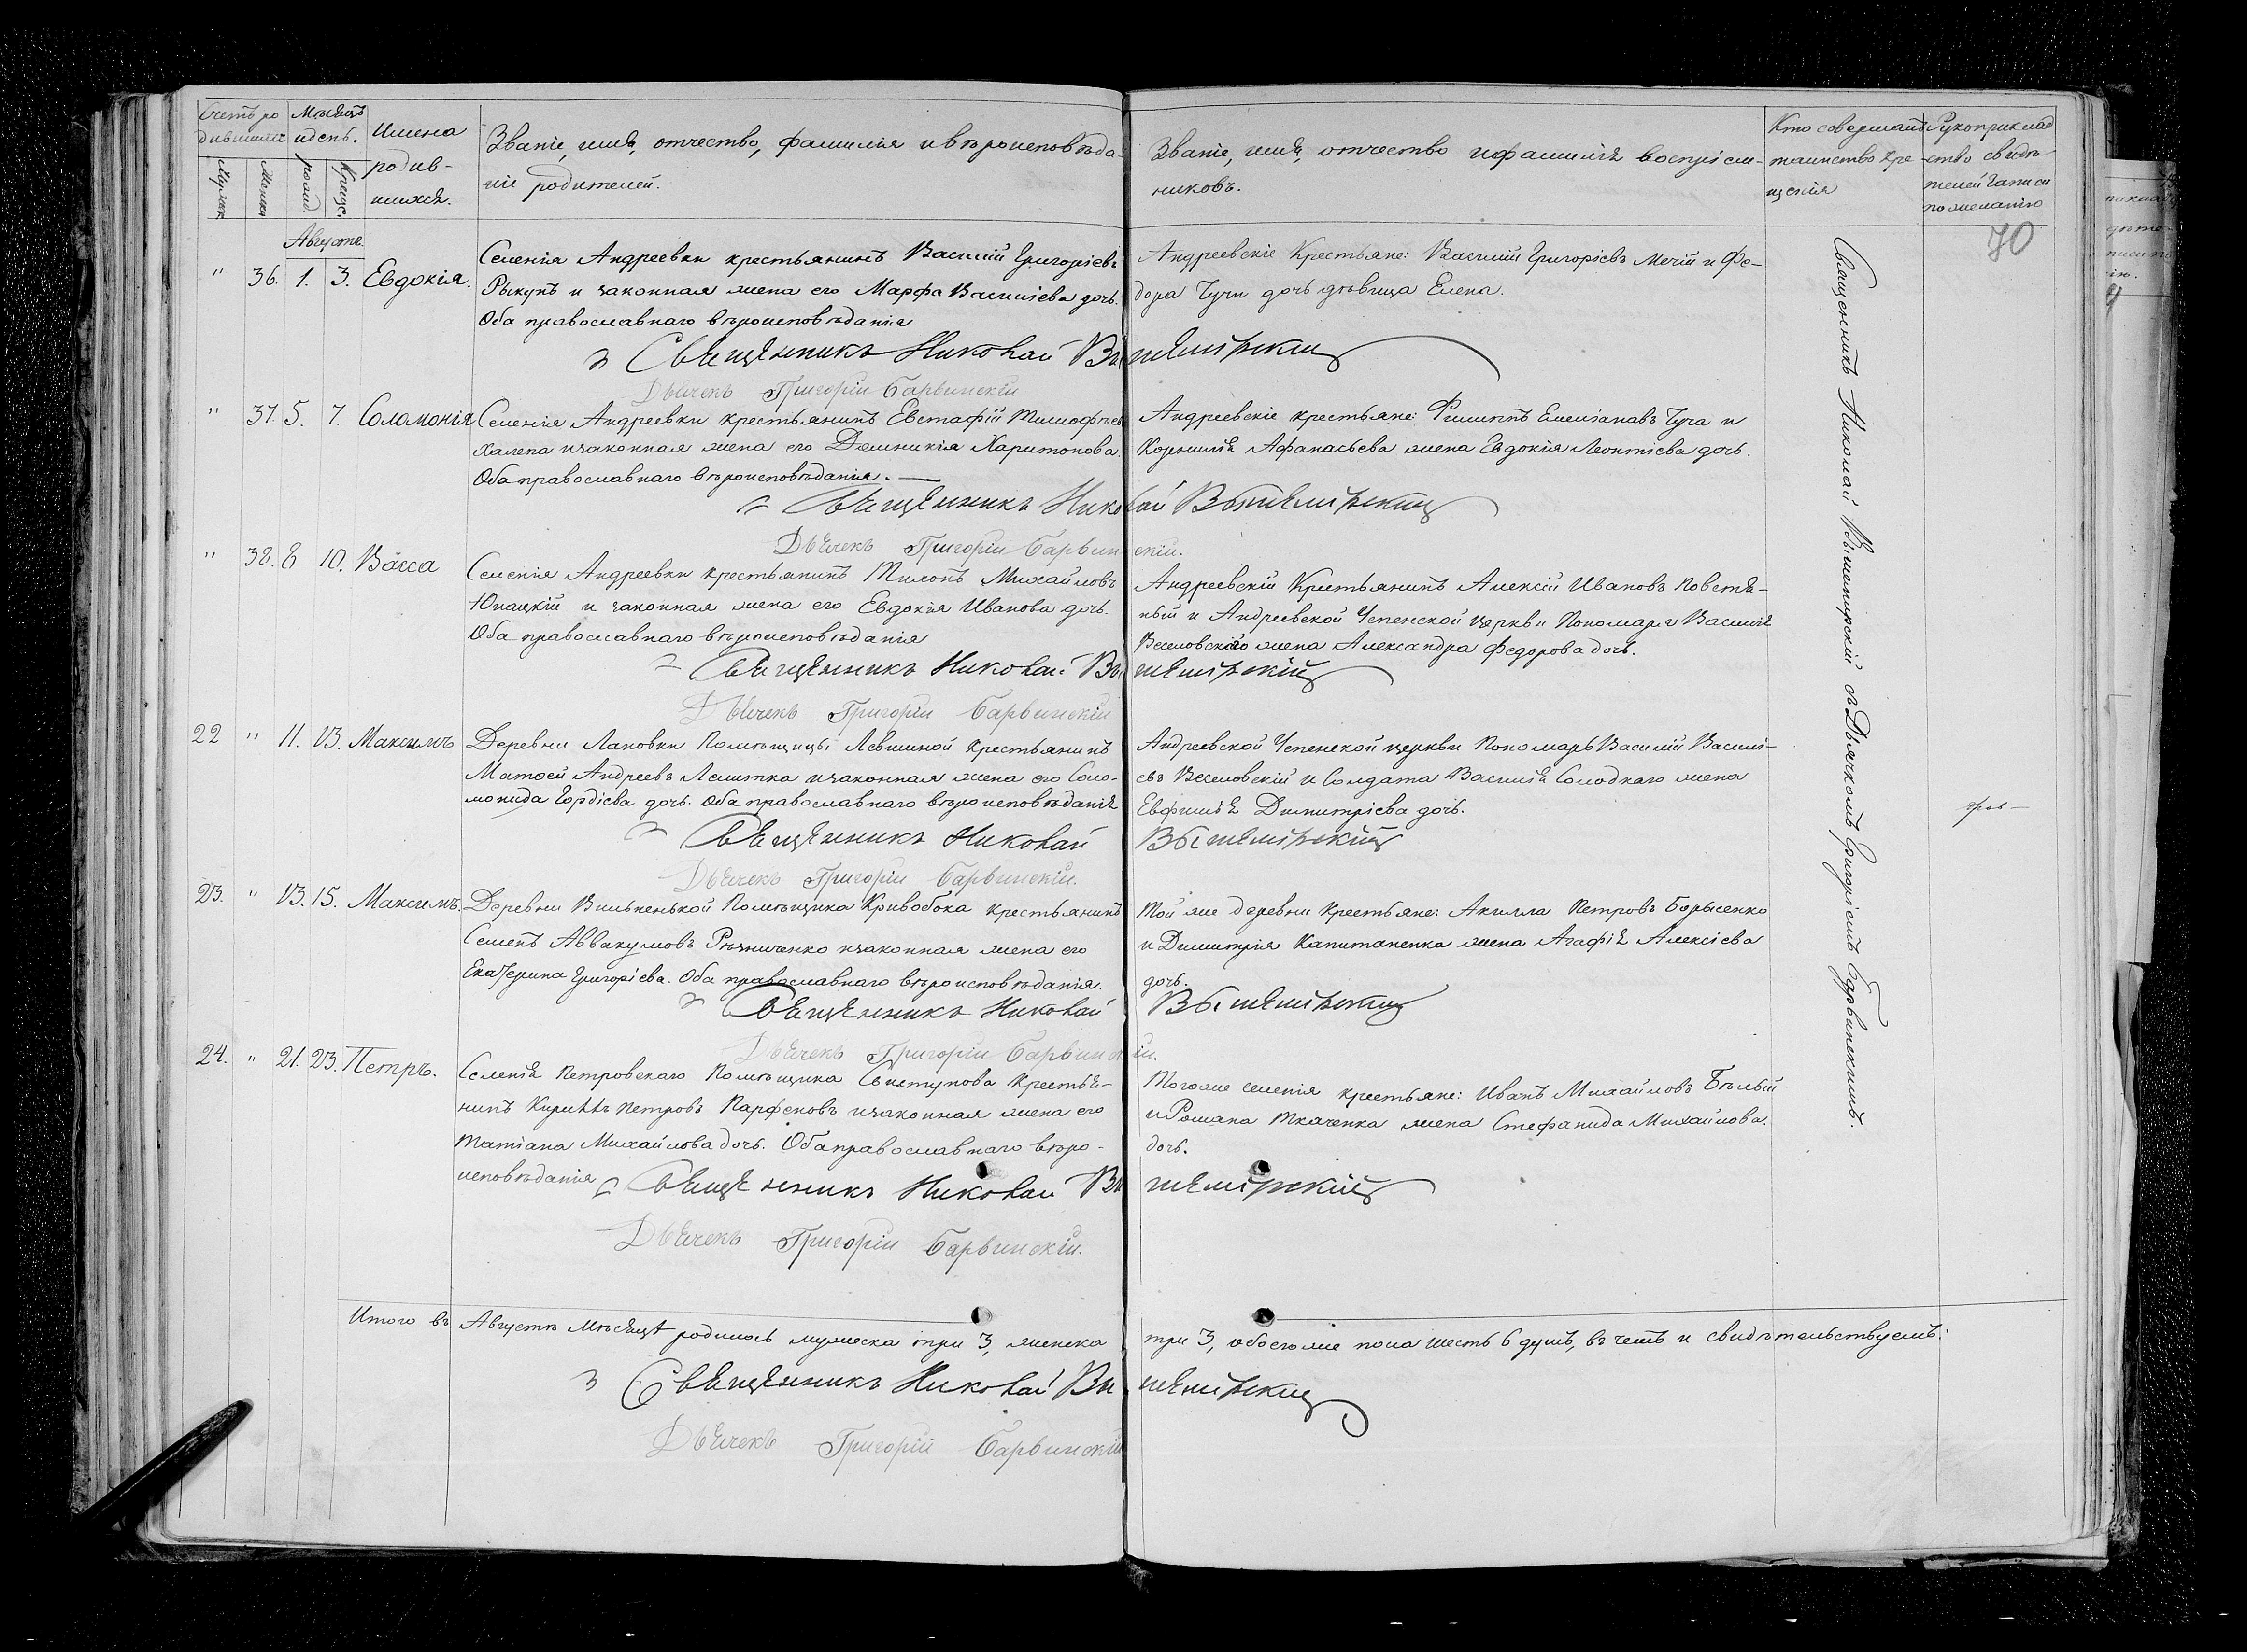 Счетъ ро
дившихся
Мѣсяцъ
и день.
Имена
родив-
шихся.
Званіе, имя, отчество, фамилія и вѣроисповѣда-
ніе родителей.
Званіе, имя, отчество и фамилія воспріем-
никовъ.
Кто совершалъ
таинство кре-
щенія
Рукоприклад
ство свидѣ-
телей записи
по желанію
Мужск
Женск
Рожд.
Крещ.
70
Августъ.
" 36. 1. 3. Евдокія.
Селенія Андреевки крестьянинъ Василій Григоріевъ
Рыкунъ и законная жена его Марфа Василіева дочь.
Оба православнаго вѣроисповѣданія
Андреевскіе Крестьяне: Василій Григоріевъ Мечій и Фе-
дора Чучи дочь дѣвица Елена.
Священникъ Николай Вышемірскій
Дьячекъ Григорій Барвинскій
" 37. 5. 7. Соломонія
Селенія Андреевки крестьянинъ Евстафій Тимофѣев
Халепа и законная жена его Домникія Харитонова.
Оба православнаго вѣроисповѣданія.
Андреевскіе крестьяне: Филиппъ Емеліановъ Чуча и
Корнилія Афанасьева жена Евдокія Леонтіева дочь.
Священникъ Николай Вышемірскій
Дьячекъ Григорій Барвинскій.
" 38. 8 10. Васса
Селенія Андреевки крестьянинъ Тихонъ Михайловъ
Юнацкій и законная жена его Евдокія Иванова дочь.
Оба православнаго вѣроисповѣданія
Андреевскій Крестьянинъ Алексій Ивановъ Повстя-
ный и Андреевской Успенской церкви Пономаря Василія
Веселовскаго жена Александра Федорова дочь.
Священникъ Николай Вышемірскій
Дьячекъ Григорій Барвинскій
22 " 11. 13. Максимъ
Деревни Лановки Помѣщицы Левшиной крестьянинъ
Матѳей Андреевъ Лемишка и законная жена его Соло-
монида Гордіева дочь. Оба православнаго вѣроисповѣданія
Андреевской Успенской церкви Пономарь Василій Василі-
евъ Веселовскій и Солдата Василія Солодкаго жена
Евфимія Димитріева дочь.
Священникъ Николай Вышемірскій
Дьячекъ Григорій Барвинскій.
23. " 13. 15. Максимъ.
Деревни Вильненькой Помѣщика Кривобока крестьянинъ
Семенъ Аввакумовъ Рѣзниченко и законная жена его
Екатерина Григоріева. Оба православнаго вѣроисповѣданія.
Той же деревни крестьяне: Акилла Петровъ Борысенко
и Димитрія Капитаненка жена Агафія Алексіева
дочь.
Священникъ Николай Вышемірскій
Дьячекъ Григорій Барвинскій.
24. " 21. 23. Петръ.
Селенія Петровскаго Помѣщика Свистунова крестья-
нинъ Кириллъ Петровъ Парфеновъ и законная жена его
Татіана Михайлова дочь. Оба православнаго вѣро-
исповѣданія
Тогоже селенія крестьяне: Иванъ Михайловъ Бѣлый
и Романа Ткаченка жена Стефанида Михайлова.
дочь.
Священникъ Николай Вышемірскій
Дьячекъ Григорій Барвинскій.
Священникъ Николай Вышемирскій съ Дьячкомъ Григоріемъ Барвинскимъ.
Итого въ Августѣ Мѣсяцѣ родилось мужеска три 3, женска три 3, обоего же пола шесть 6 душъ, въ чемъ и свидѣтельствуемъ:
Священникъ Николай Вышемірскій
Дьячекъ Григорій Барвинскій